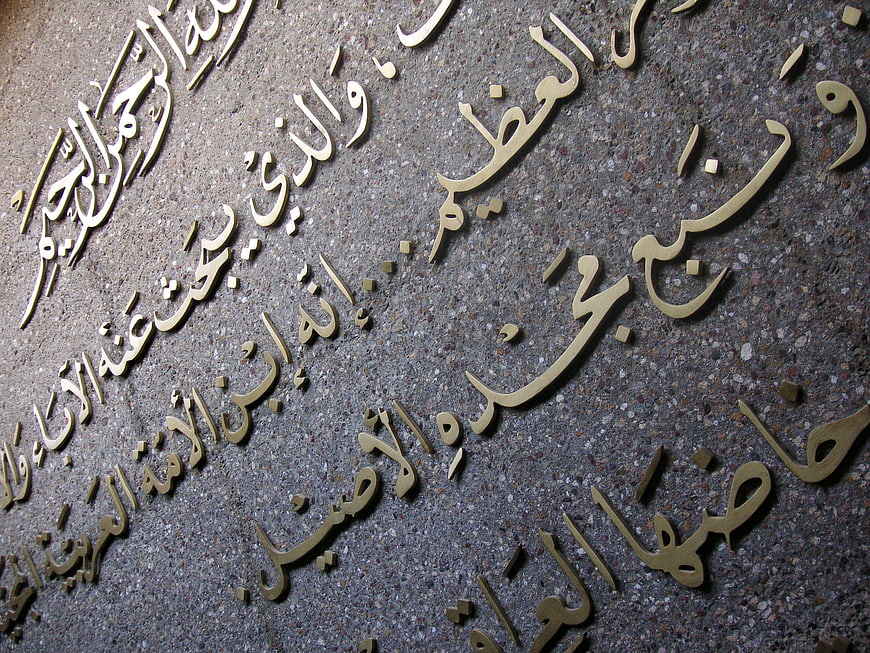 الله الرَّحمنِ الرَّحِيمِ
وَالذيْ يبحث عَنْه الآبَاء
العظيم ... إنّه ابْن الأمّة العربيّة
وَ نبع مجْدهِ الأصيْل
خاضها العراق